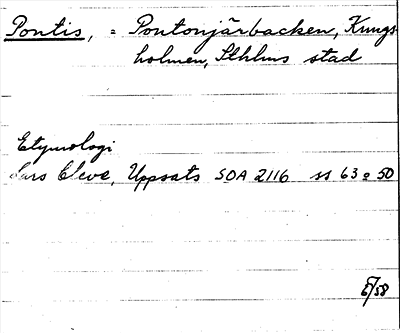 Pontis, = Pontonjärbacken, Kungs
holmen, Sthlms stad
Etymologi
Lars Cleve, Uppsats SOA 2116 ss 63 o 50
/58